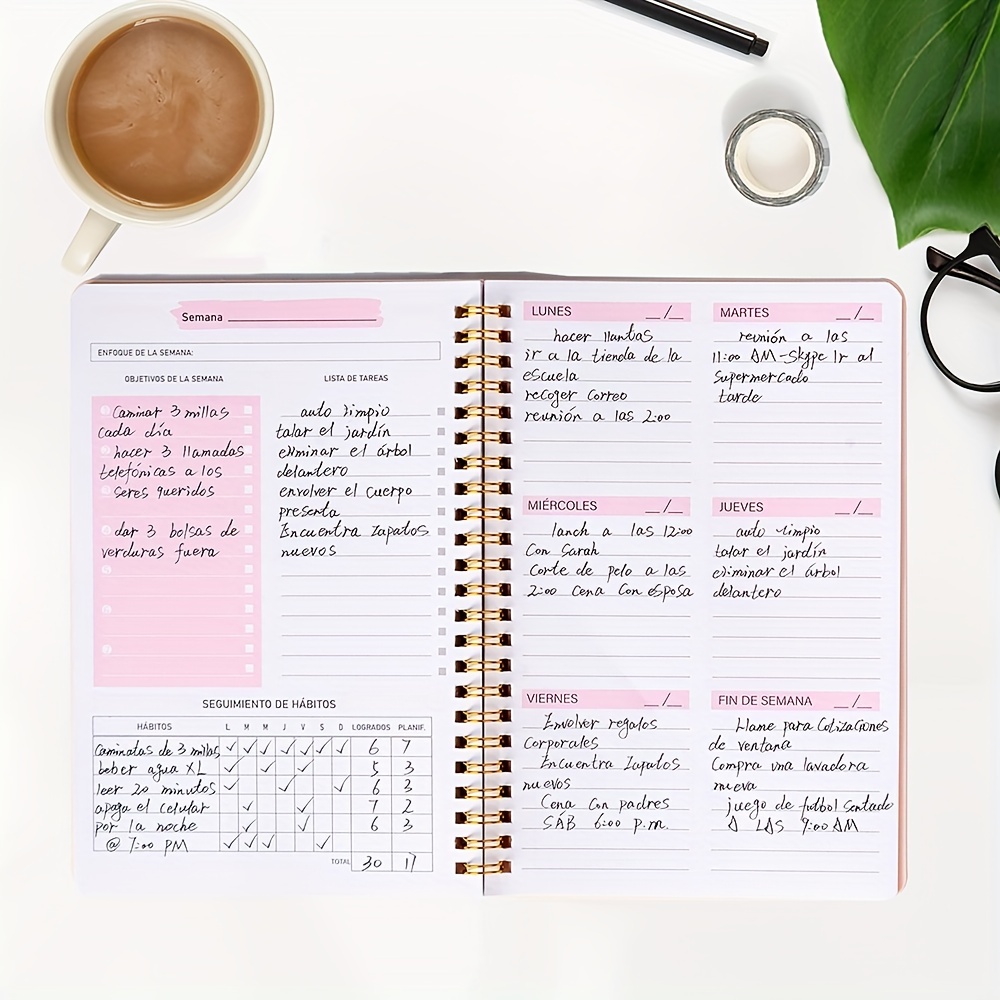 Semana
ENFOQUE DE LA SEMANA:
OBJETIVOS DE LA SEMANA
Caminar 3 millas
cada día
hacer 3 llamadas
telefónicas a los
seres queridos
dar 3 bolsas de
verduras fuera
LISTA DE TAREAS
auto limpio
talar el jardín
eliminar el árbol
delantero
envolver el cuerpo
presenta
Encuentra Zapatos
nuevos
SEGUIMIENTO DE HÁBITOS
HÁBITOS L M M J V S D LOGRADOS PLANIF.
Caminatas de 3 millas ✓ ✓ ✓ ✓ ✓ ✓ ✓ 6 7
beber agua XL ✓ ✓ ✓ 5 3
leer 20 minutos ✓ ✓ ✓ 6 3
apaga el celular ✓ ✓ 7 2
por la noche ✓ ✓ 6 3
@ 7:00 PM ✓ ✓ ✓ ✓
TOTAL 30 17
LUNES __/__
hacer llantas
ir a la tienda de la
escuela
recoger correo
reunión a las 2:00
MARTES __/__
reunión a las
11:00 AM-Skype Ir al
supermercado
tarde
MIÉRCOLES __/__
lanch a las 12:00
Con Sarah
Corte de pelo a las
2:00 Cena Con esposa
JUEVES __/__
auto limpio
talar el jardín
eliminar el árbol
delantero
VIERNES __/__
Envolver regalos
Corporales
Encuentra Zapatos
nuevos
Cena Con padres
SAB 6:00 p.m.
FIN DE SEMANA __/__
Llame para Cotizaciones
de ventana
Compra una lavadora
nueva
juego de futbol Sentado
A LAS 9:00 AM